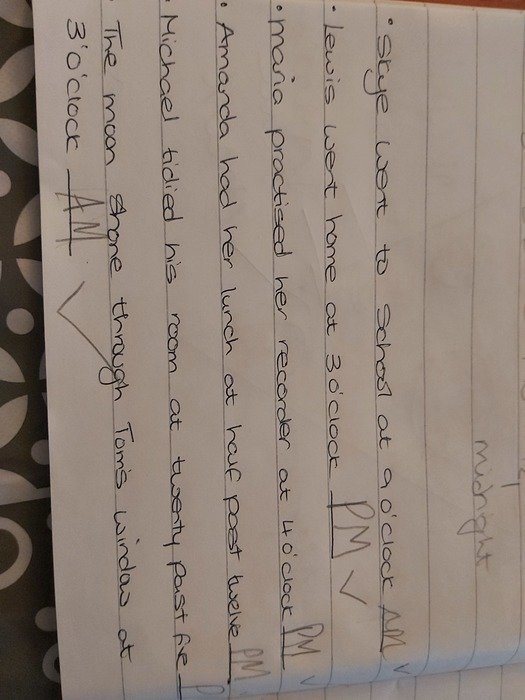 midnight
• Skye went to School at 9 o'clock AM ✓
• Lewis went home at 3 o'clock PM ✓
• maria practised her recorder at 4 o'clock PM ✓
• Amanda had her lunch at half past twelve PM
• Michael tidied his room at twenty past five P
• The moon shone through Tom's window at
3 o'clock AM ✓